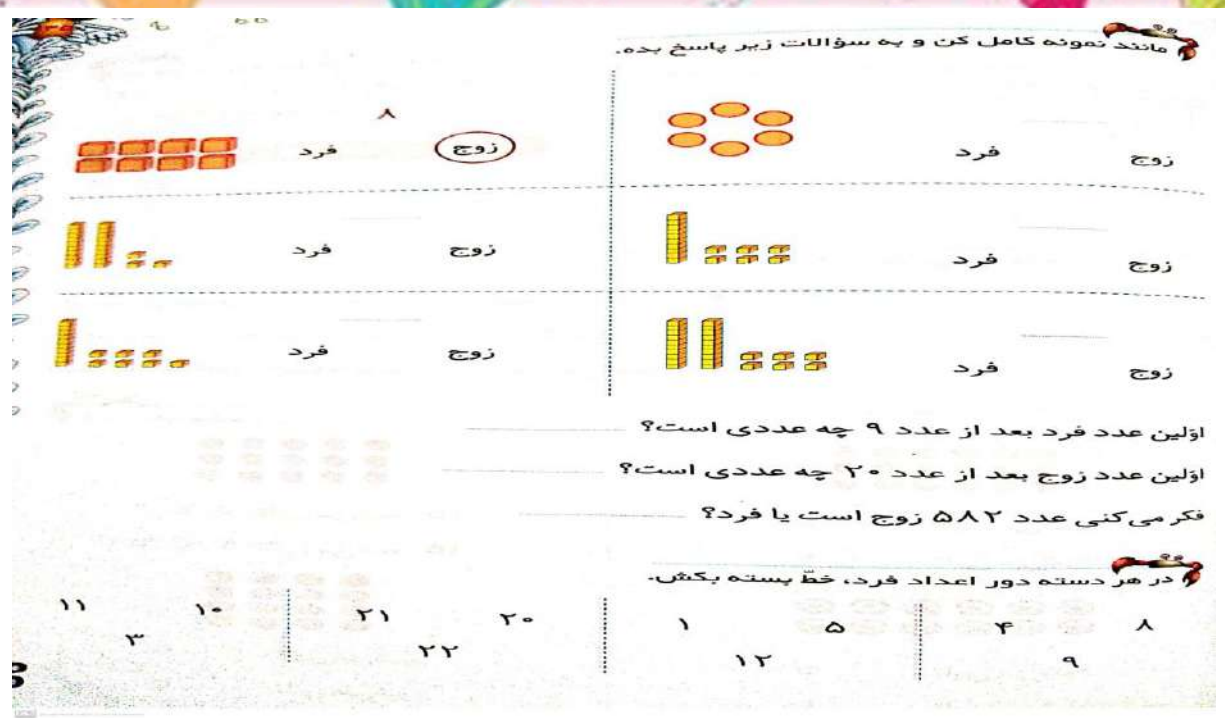 مانند نمونه کامل کن و به سؤالات زیر پاسخ بده.
زوج فرد
۸
زوج فرد
زوج فرد
زوج فرد
زوج فرد
زوج فرد
اوّلین عدد فرد بعد از عدد ۹ چه عددی است؟
اوّلین عدد زوج بعد از عدد ۲۰ چه عددی است؟
فکر می‌کنی عدد ۵۸۲ زوج است یا فرد؟
در هر دسته دور اعداد فرد، خطّ بسته بکش.
۸ ۴ ۵ ۱ ۲۰ ۲۱ ۱۰ ۱۱
۹ ۱۲ ۲۲ ۳